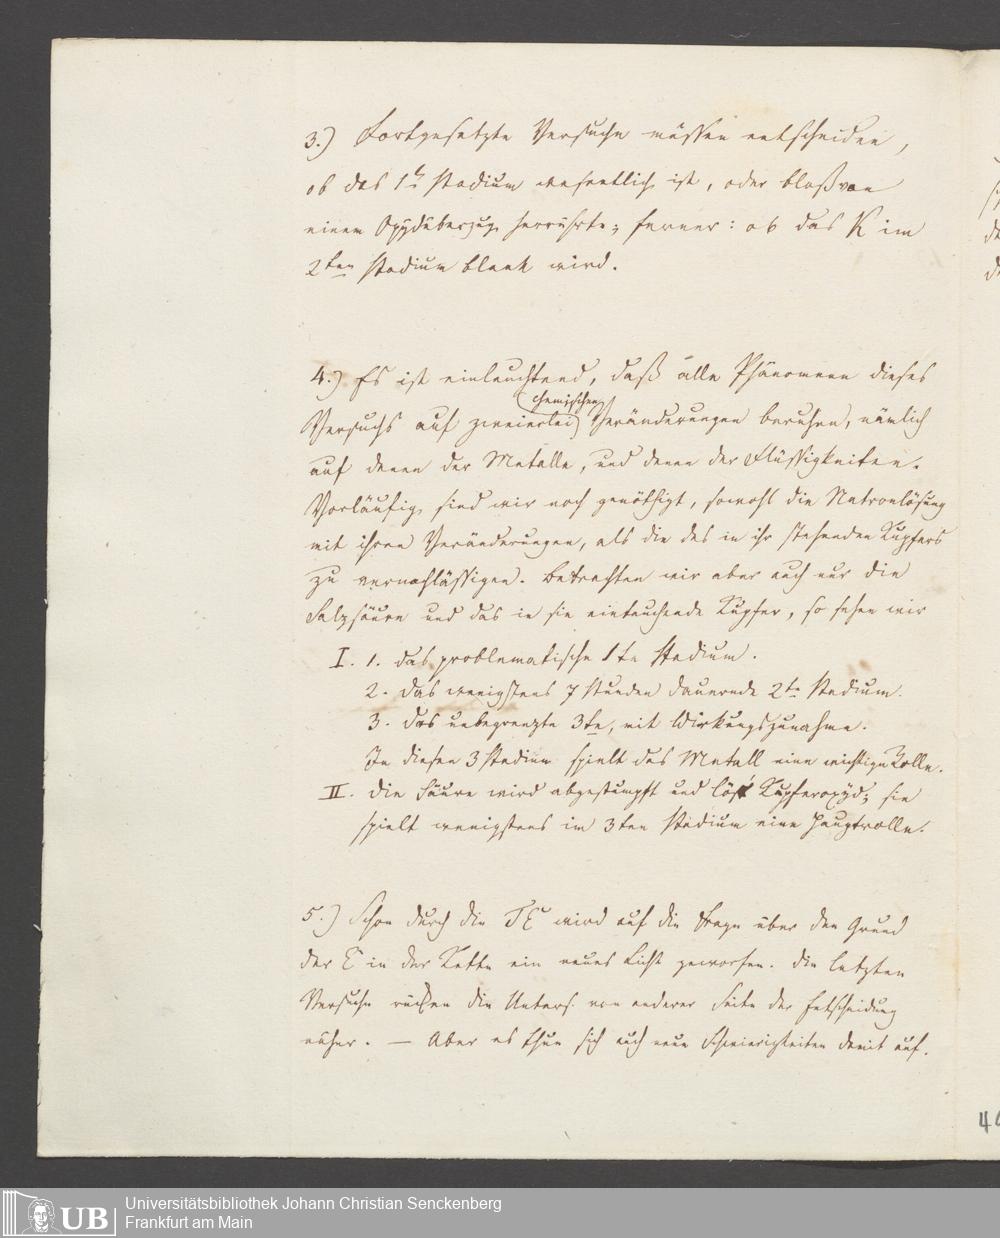 3.) Fortgesetzte Versuche müssen entscheiden,
ob das 1te Stadium wesentlich ist, oder bloß von
einem Oxydüberzug herrührte; ferner: ob das K im
2ten Stadium blank wird.
4.) Es ist einleuchtend, daß alle Phänomene dieses
Versuchs auf zweierlei (chemischen) Veränderungen beruhen, nämlich
auf denen der Metalle, und denen der Flüssigkeiten.
Vorläufig sind wir noch genöthigt, sowohl die Natronlösung
mit ihren Veränderungen, als die des in ihr stehenden Kupfers
zu vernachlässigen. Betrachten wir aber auch nur die
Salzsäure und das in sie eintauchende Kupfer, so sehen wir
I. 1. das problematische 1te Stadium.
2. das wenigstens 7 Stunden dauernde 2te Stadium.
3. das unbegrenzte 3te, mit Wirkungszunahme.
In diesen 3 Stadien spielt das Metall eine wichtige Rolle.
II. die Säure wird abgestumpft und löst Kupferoxyd; sie
spielt wenigstens im 3ten Stadium eine Hauptrolle.
5.) Schon durch die wird auf die Frage über den Grund
der E in der Kette ein neues Licht geworfen. Die letzten
Versuche rücken die Unters. von anderer Seite der Entscheidung
näher. — Aber es thun sich auch neue Schwierigkeiten damit auf.
UB
Universitätsbibliothek Johann Christian Senckenberg
Frankfurt am Main